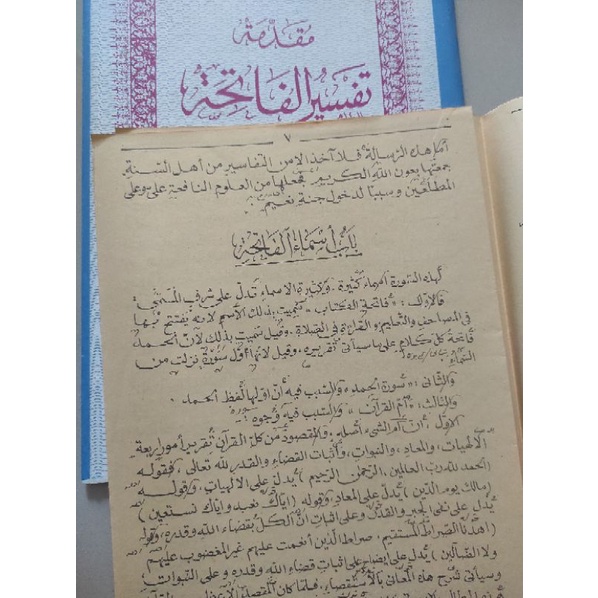 مقدمة
تفسير الفاتحة
٧
أكثر هذه الرسالة فلا آخذ إلا من التفاسير من أهل السنة
جمعتها بعون الله الكريم فجعلها من العلوم النافعة علي وعلى
المطالعين وسببا لدخول جنة نعيم.
باب أسماء الفاتحة
لهذه السورة أسماء كثيرة. وكثرة الأسماء تدل على شرف المسمى
فالأول: "فاتحة الكتاب" سميت بذلك الاسم لأنه يفتتح بها
في المصاحف والتعليم والقراءة في الصلاة وقيل سميت بذلك لأن الحمد
فاتحة كل كلام على ما سيأتي تقريره، وقيل لأنها أول سورة نزلت من
السماء
والثاني: "سورة الحمد" والسبب فيه أن أولها لفظ الحمد.
والثالث: "أم القرآن" والسبب فيه وجوه:
الأول، أن أم الشيء أصله، والمقصود من كل القرآن تقرير أمور أربعة
الإلهيات، والمعاد، والنبوات، وإثبات القضاء والقدر لله تعالى، فقوله
الحمد لله رب العلمين الرحمن الرحيم) يدل على الإلهيات، وقوله
(مالك يوم الدين) يدل على المعاد وقوله (إياك نعبد وإياك نستعين)
يدل على نفي الجبر والقدر وعلى إثبات أن الكل بقضاء الله وقدره، وقوله
(اهدنا الصراط المستقيم، صراط الذين أنعمت عليهم غير المغضوب عليهم
ولا الضالين) يدل على إيضاح على إثبات قضاء الله وقدره وعلى النبوات
وسيأتي شرح هذه المعاني بالاستقصاء، فلما كان المقصد الأعظم من